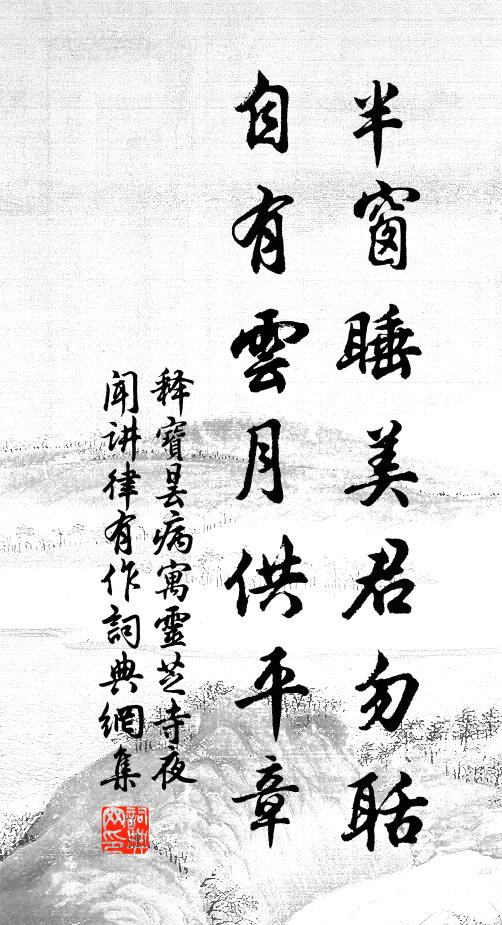 半窗睡美君勿聒
自有雲月供平章
释寶曇病寓靈芝寺夜
闻讲律有作詞典網集